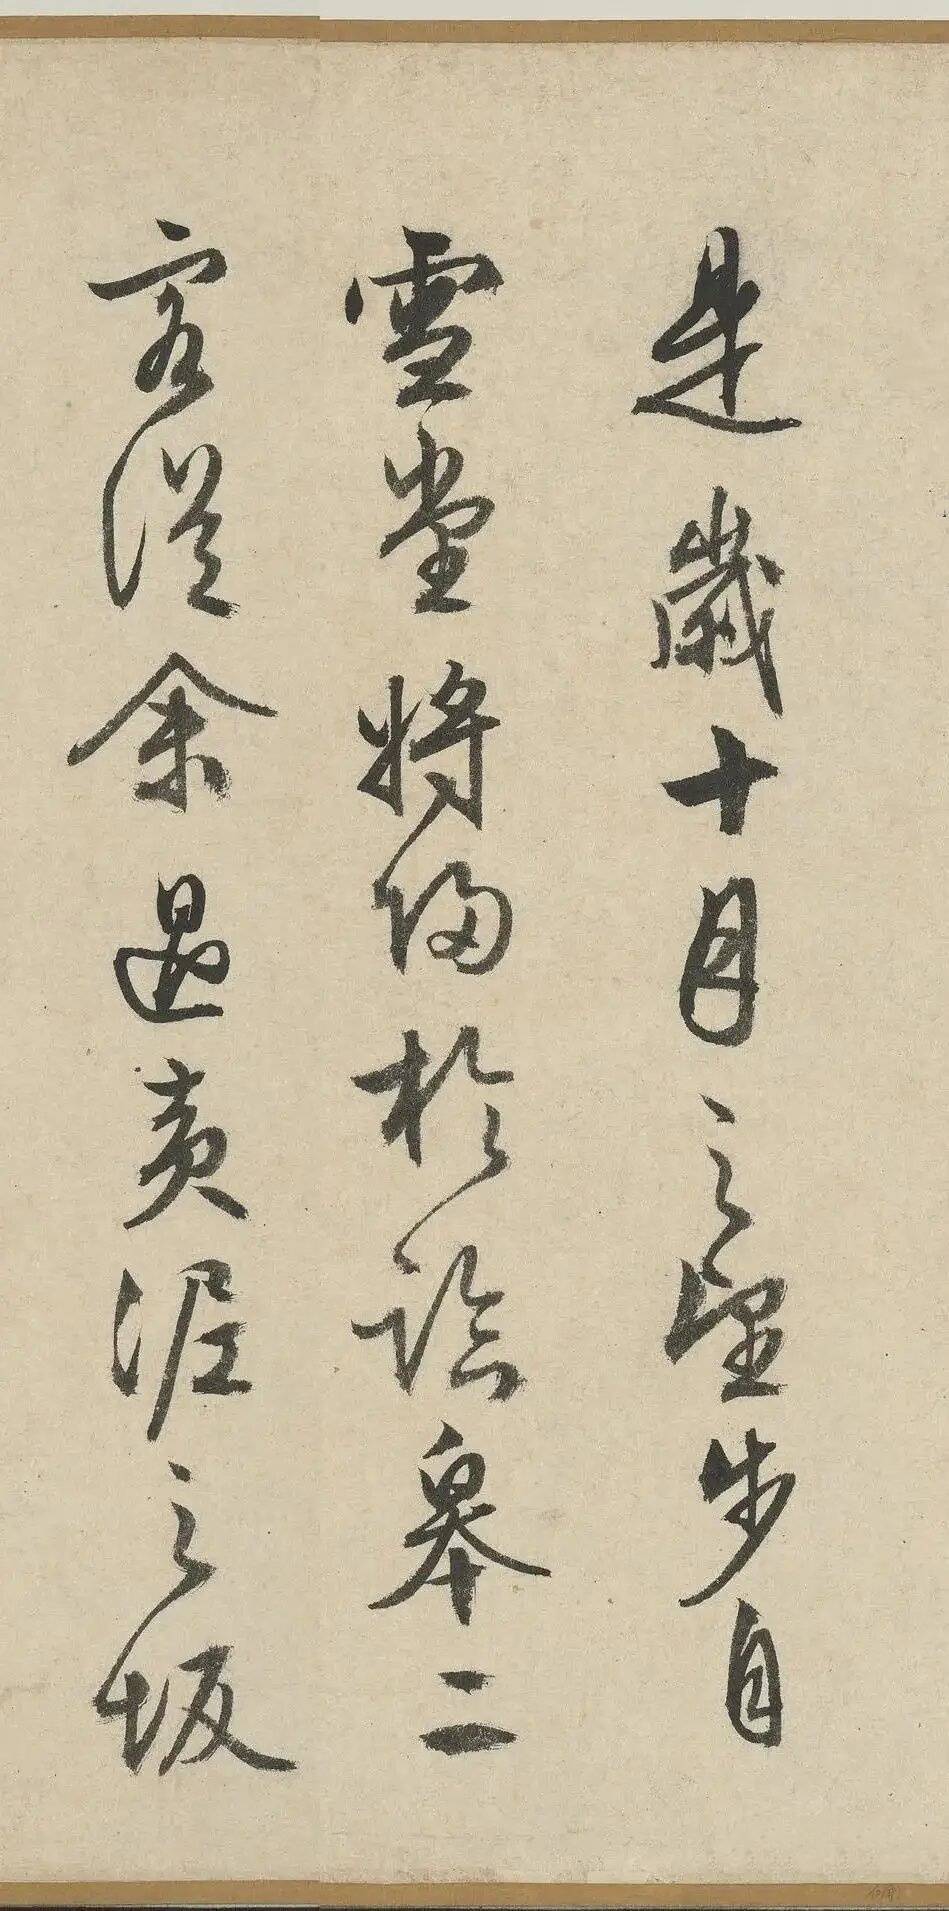 是歲十月之望步自
雪堂將歸於臨皋二
客從余過黃泥之坂